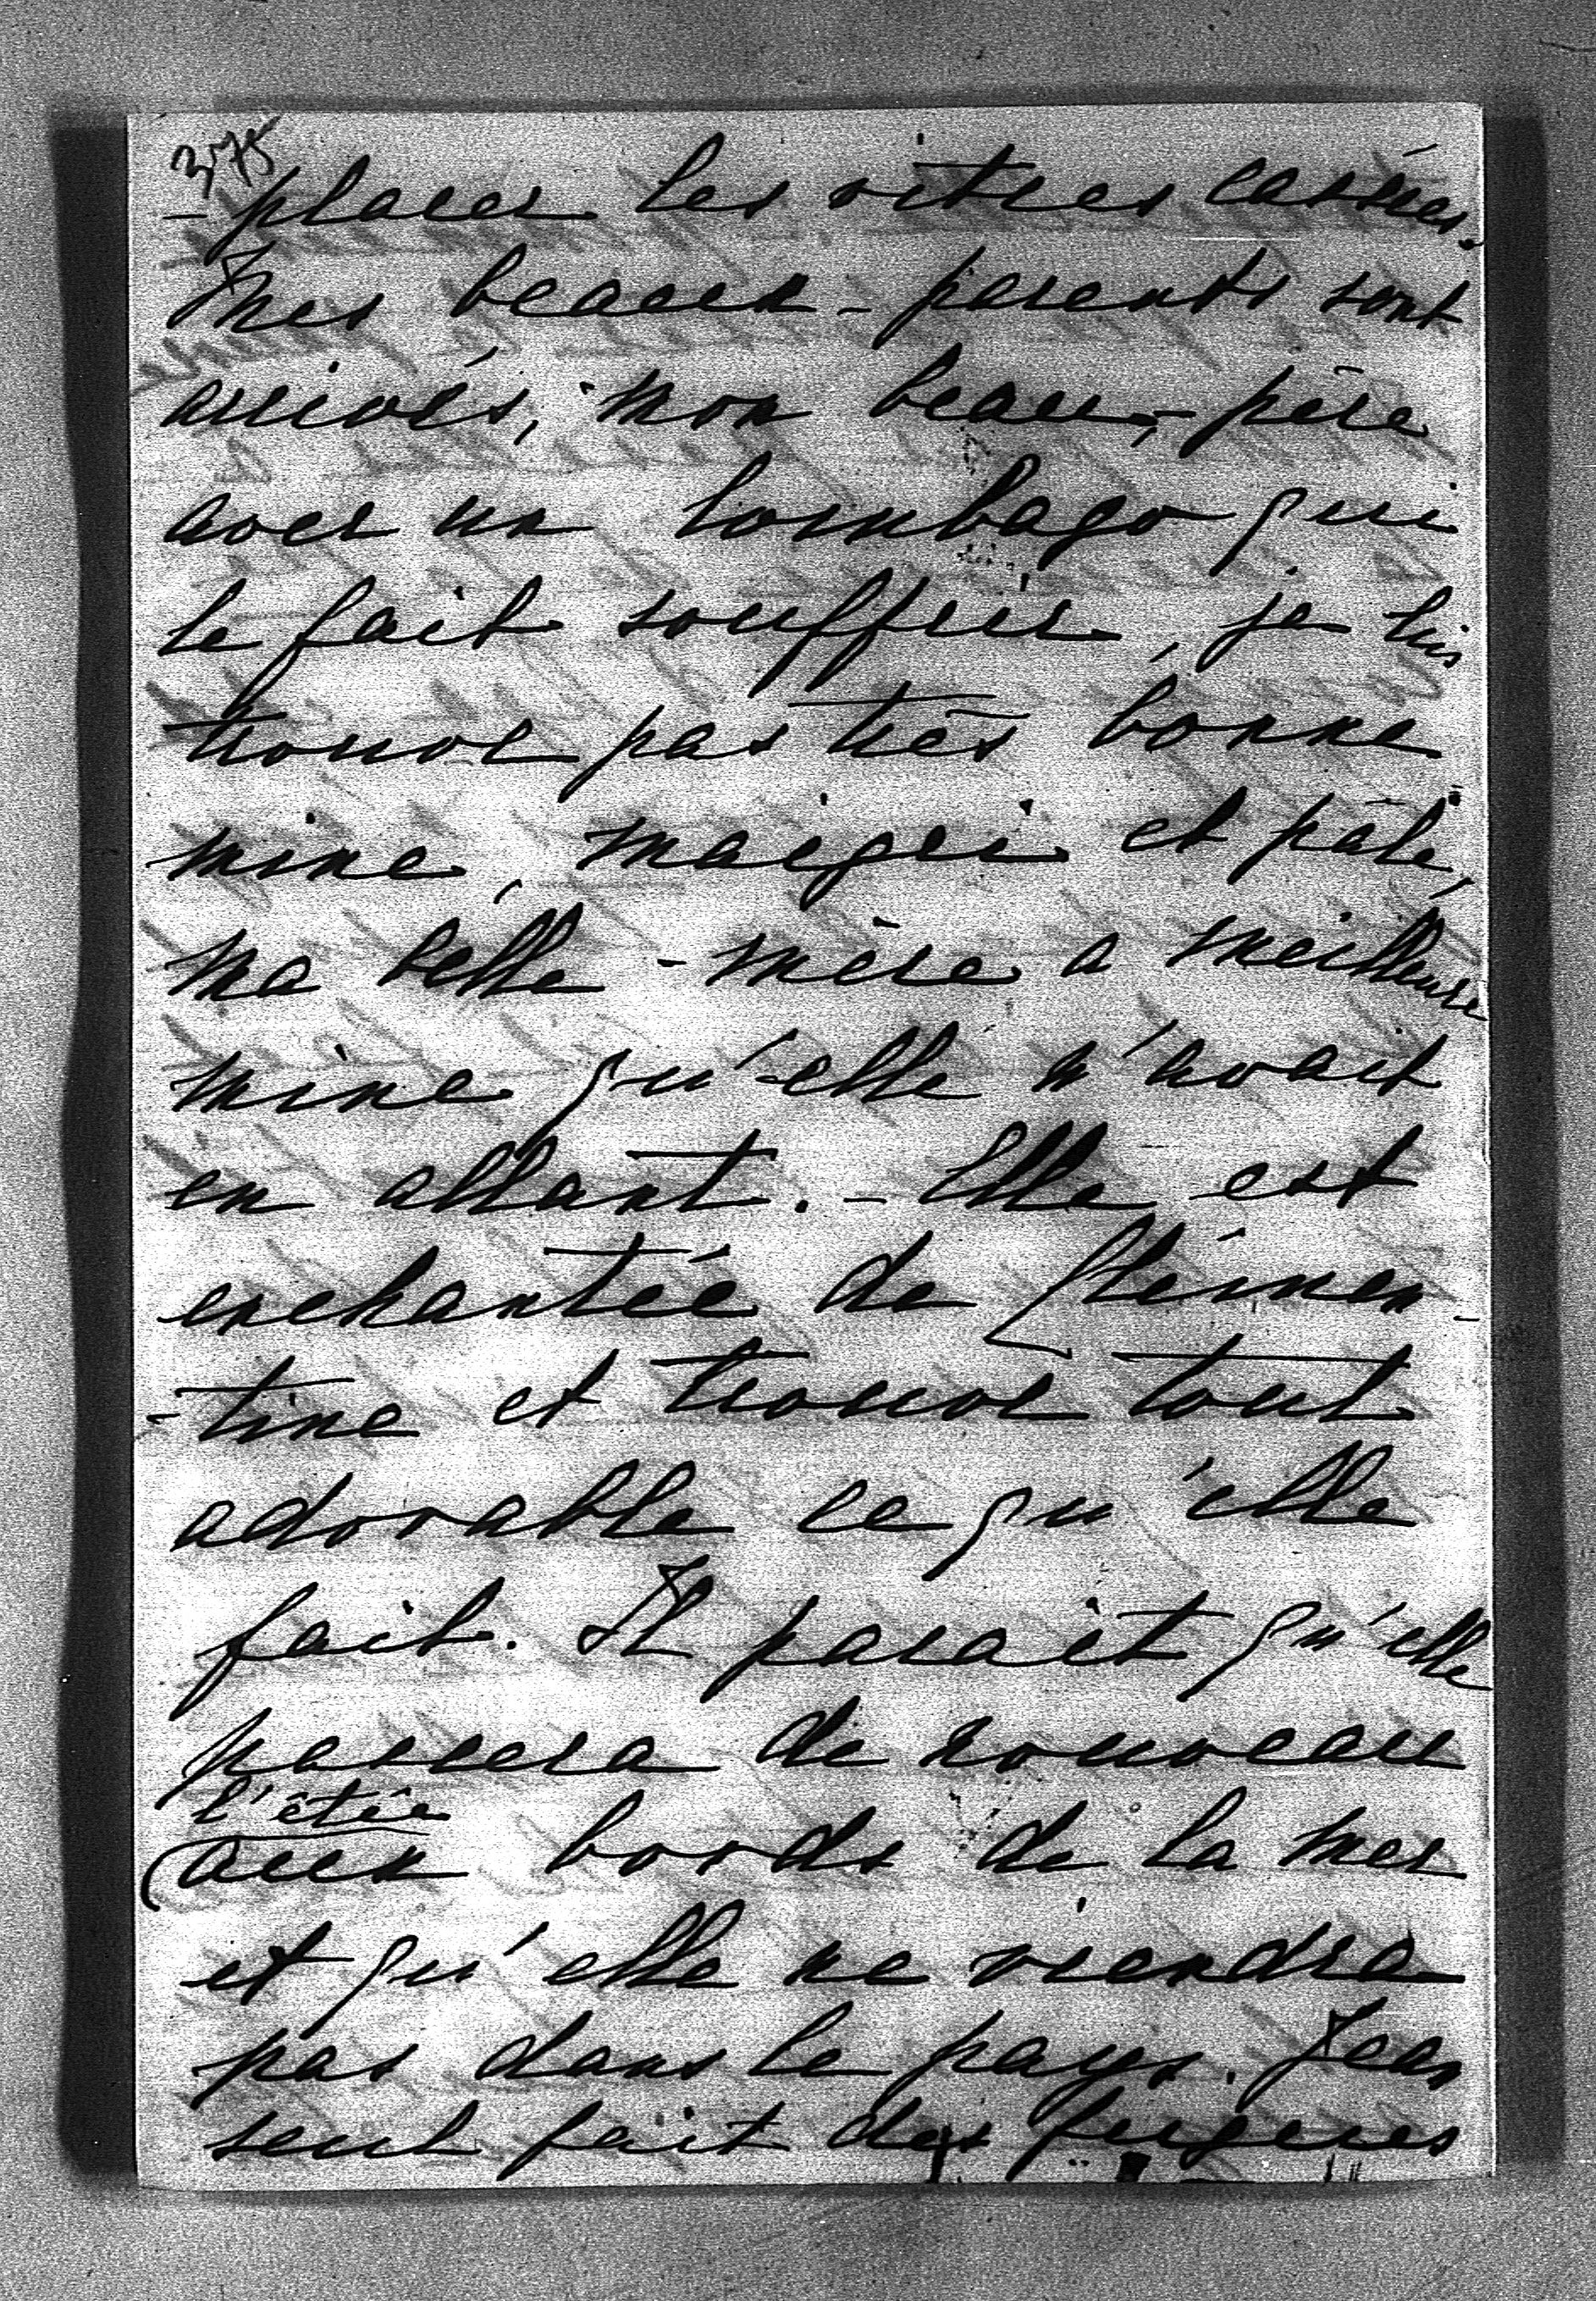 375
-placer les vitres cassées.
Mes beaux-parents sont
arrivés, mon beau-père
avec un lombago qui
le fait souffrir, je lui
trouve pas très bonne
mine, maigri et pâle,
ma belle-mère a meilleure
mine qu'elle n'avait
en allant. - Elle est
enchantée de Clémen-
-tine et trouve tout
adorable ce qu'elle
fait. Il parait qu'elle
passera de nouveau
l'étée
aux bords de la mer
et qu'elle ne viendra
pas dans le pays. Jean
seul fait des